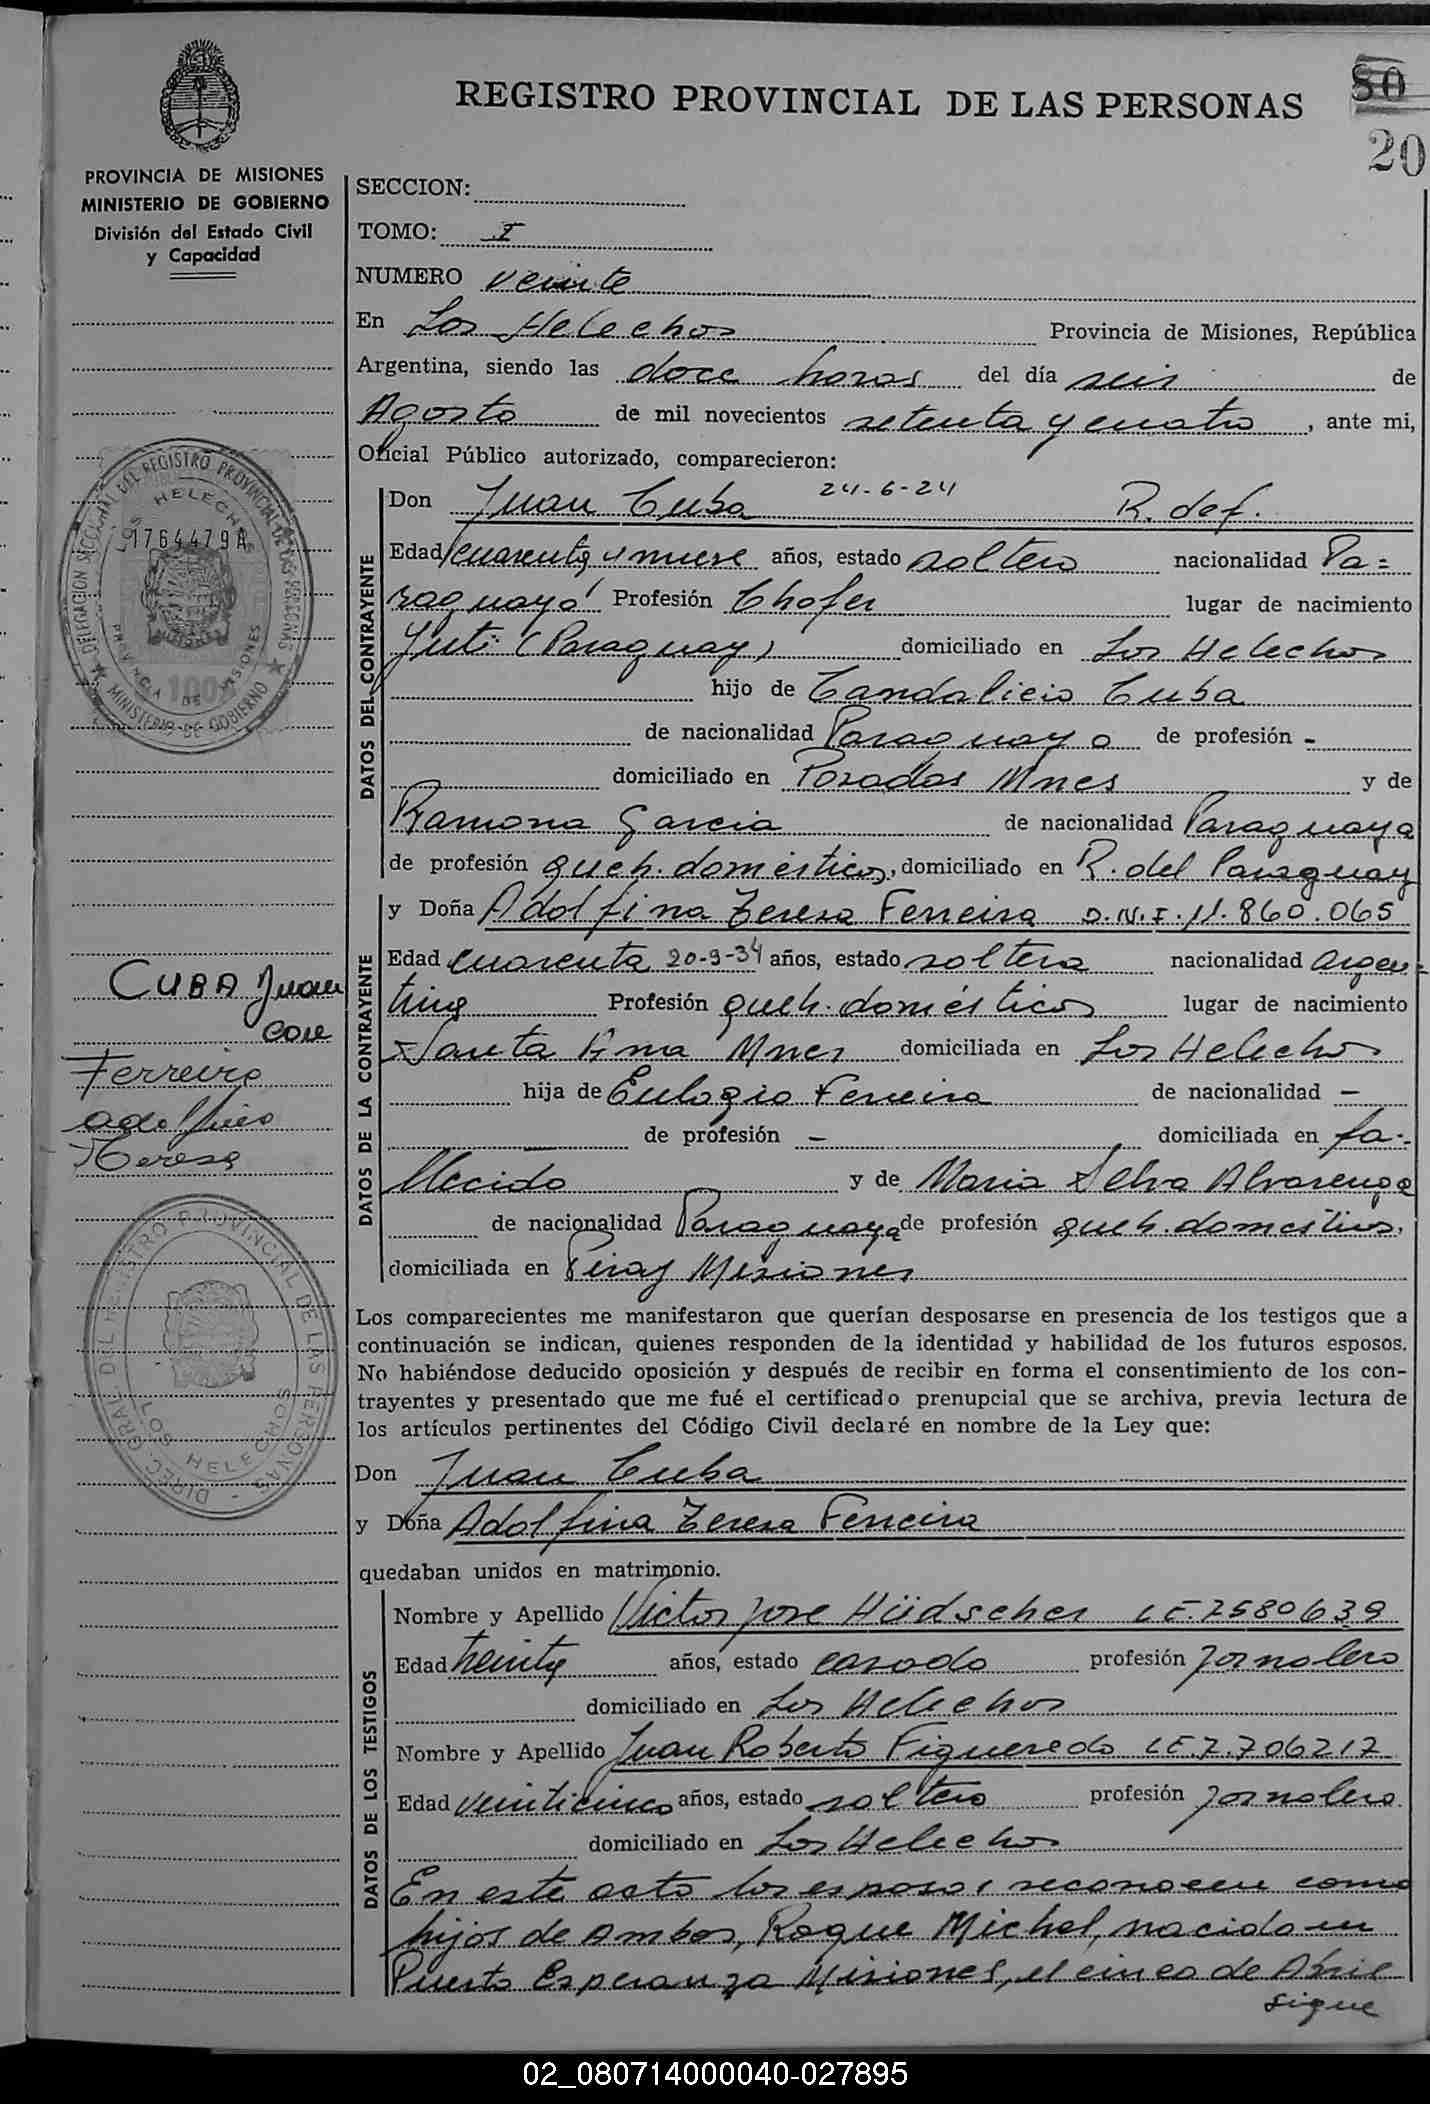 REGISTRO PROVINCIAL DE LAS PERSONAS
80
20
PROVINCIA DE MISIONES
MINISTERIO DE GOBIERNO
División del Estado Civil
y Capacidad
SECCION:
TOMO: I
NUMERO veinte
En Los Helechos Provincia de Misiones, República
Argentina, siendo las doce horas del día seis de
Agosto de mil novecientos setenta y cuatro, ante mi,
Oficial Público autorizado, comparecieron:
DATOS DEL CONTRAYENTE
Don Juan Cuba 24-6-24 R. def.
Edad cuarenta y nueve años, estado soltero nacionalidad Pa=
raguayo Profesión Chofer lugar de nacimiento
Yuti (Paraguay) domiciliado en Los Helechos
hijo de Candalicio Cuba
de nacionalidad Paraguayo de profesión -
domiciliado en Posadas Mnes y de
Ramona Garcia de nacionalidad Paraguaya
de profesión queh. domésticos, domiciliado en R. del Paraguay
DATOS DE LA CONTRAYENTE
y Doña Adolfina Teresa Ferreira D.N.I. 11.860.065
Edad cuarenta 20-9-34 años, estado soltera nacionalidad argen=
tina Profesión queh. domésticos lugar de nacimiento
Santa Ana Mnes domiciliada en Los Helechos
hija de Eulogio Ferreira de nacionalidad -
de profesión - domiciliada en fa-
llecido y de Maria Selva Alvarenga
de nacionalidad Paraguaya de profesión queh. domesticos,
domiciliada en Piray Misiones
Los comparecientes me manifestaron que querían desposarse en presencia de los testigos que a
continuación se indican, quienes responden de la identidad y habilidad de los futuros esposos.
No habiéndose deducido oposición y después de recibir en forma el consentimiento de los con-
trayentes y presentado que me fué el certificado prenupcial que se archiva, previa lectura de
los artículos pertinentes del Código Civil declaré en nombre de la Ley que:
Don Juan Cuba
y Doña Adolfina Teresa Ferreira
quedaban unidos en matrimonio.
DATOS DE LOS TESTIGOS
Nombre y Apellido Victor Jose Hüdscher LE 7580639
Edad treinta años, estado casado profesión jornalero
domiciliado en Los Helechos
Nombre y Apellido Juan Roberto Figueredo LE.7.706217
Edad veinticinco años, estado soltero profesión jornalero
domiciliado en Los Helechos
En este acto los esposos reconocen como
hijos de Ambos, Roque Michel, nacido en
Puerto Esperanza Misiones, el cinco de Abril
sigue
DELEGACION SECCIONAL DEL REGISTRO PROVINCIAL DE LAS PERSONAS
LOS HELECHOS
1764479A
PROVINCIA DE MISIONES
MINISTERIO DE GOBIERNO
CUBA Juan
con
Ferreira
adolfina
Teresa
DIREC. GRAL. DEL REGISTRO PROVINCIAL DE LAS PERSONAS
LOS HELECHOS
02_080714000040-027895